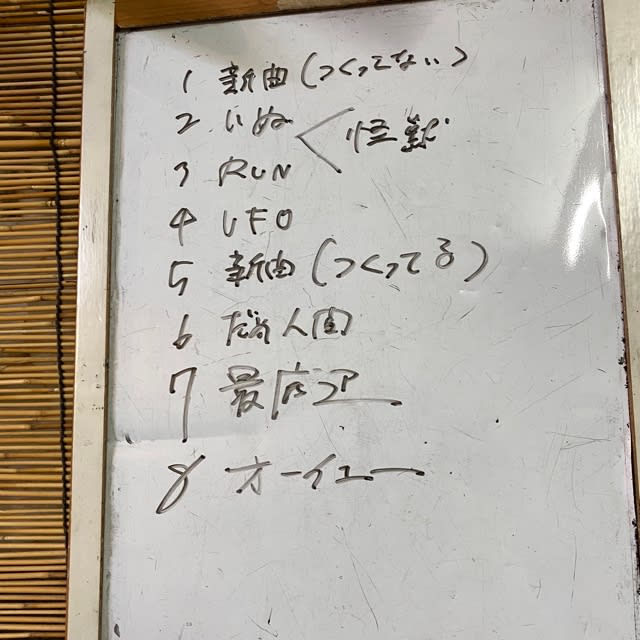 1 新曲(つくってない)
2 いぬ < 怪獣
3 RUN
4 UFO
5 新曲(つくってる)
6 人間
7
8 オーイェー